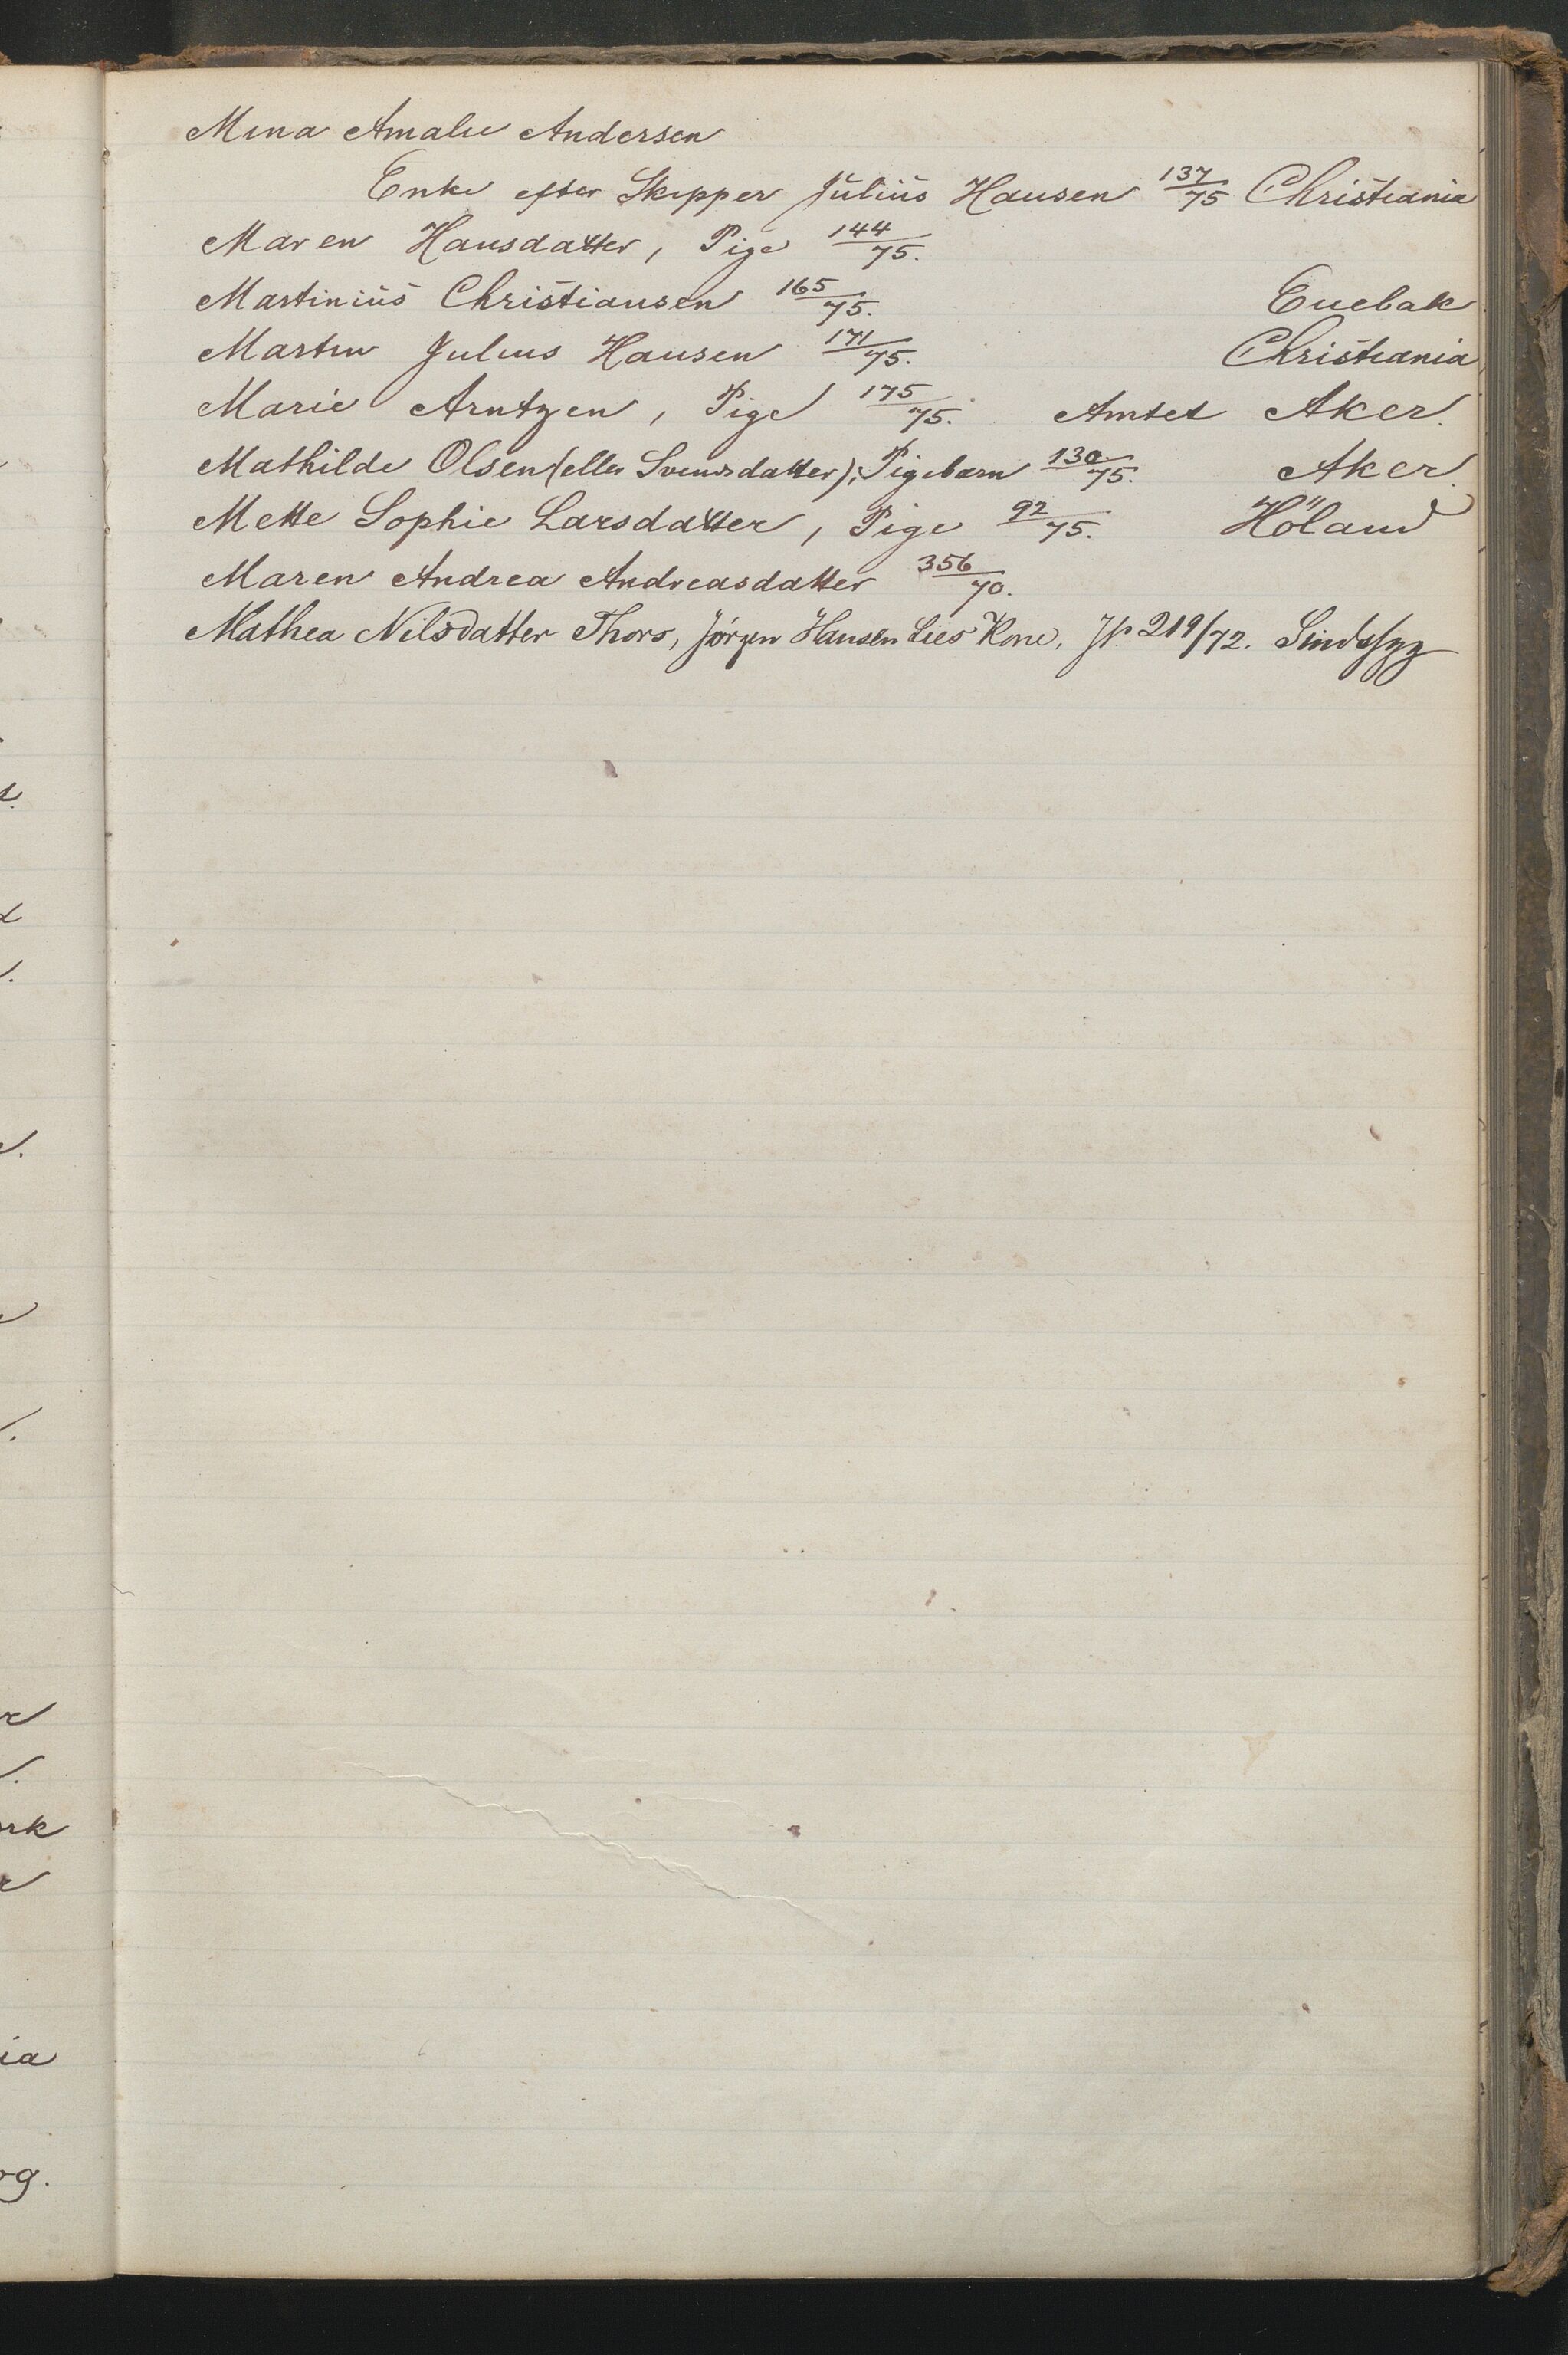 Mina Amalie Andersen
Enke efter Skipper Julius Hansen 137/75 Christiania
Maren Hansdatter, Pige 144/75.
Martinius Christiansen 165/75. Enebak
Martin Julius Hansen 171/75. Christiania
Marie Arntzen, Pige 175/75. Amtet Aker.
Mathilde Olsen (eller Svendsdatter), Pigebarn 130/75. Aker.
Mette Sophie Larsdatter, Pige 92/75. Höland
Maren Andrea Andreasdatter 356/70.
Mathea Nilsdatter Thors, Jörgen Hansen Lies Kone, Jr. 219/72. Sindssyg